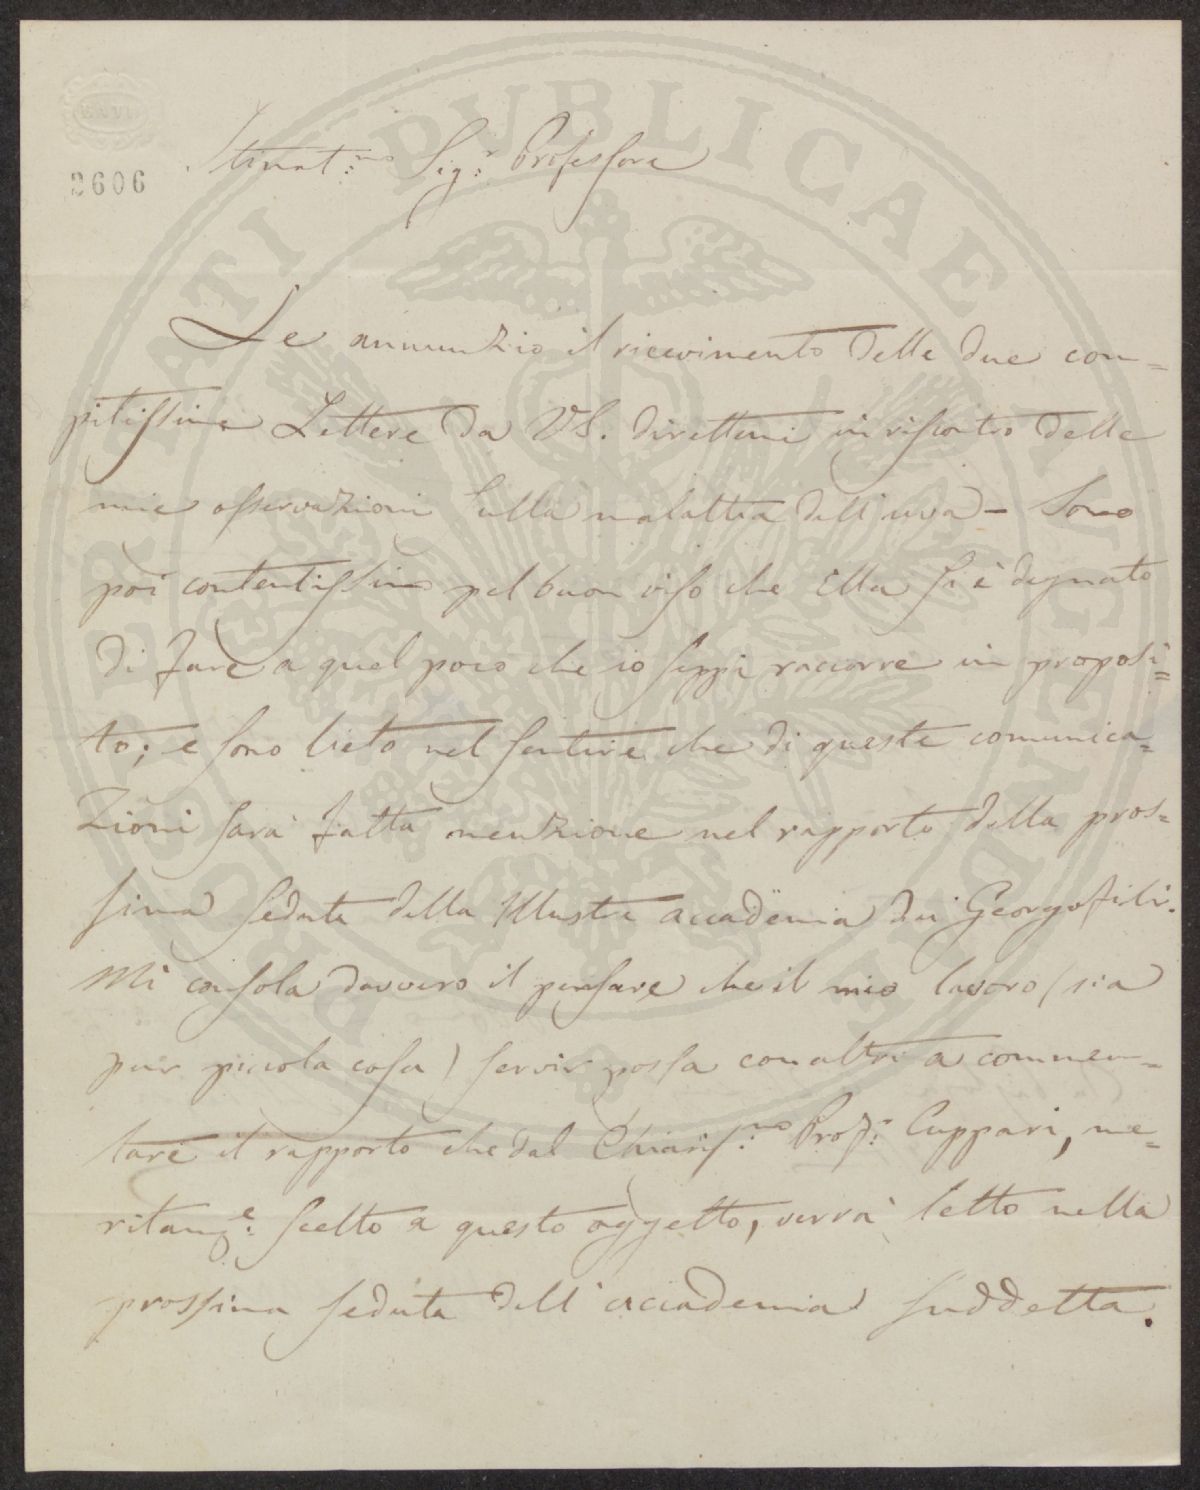 BATH
2606
Stimat.mo Sig.r Professore
Le annunzio il ricevimento delle due com=
pitissime Lettere da VS. direttemi in riscontro delle
mie osservazioni sulla malattia dell'uva - Sono
poi contentissimo pel buon viso che Ella si è degnato
di fare a quel poco che io seppi raccorre in proposi=
to; e sono lieto nel sentire che di queste comunica=
zioni sarà fatta menzione nel rapporto della pros=
sima seduta della Illustre accademia dei Georgofili.
Mi consola davvero il pensare che il mio lavoro (sia
pur piccola cosa) servir possa con altri a commen=
tare il rapporto che dal Chiaris.mo Prof.r Cuppari, me=
ritam.e scelto a questo oggetto, verrà letto nella
prossima seduta dell'accademia suddetta.